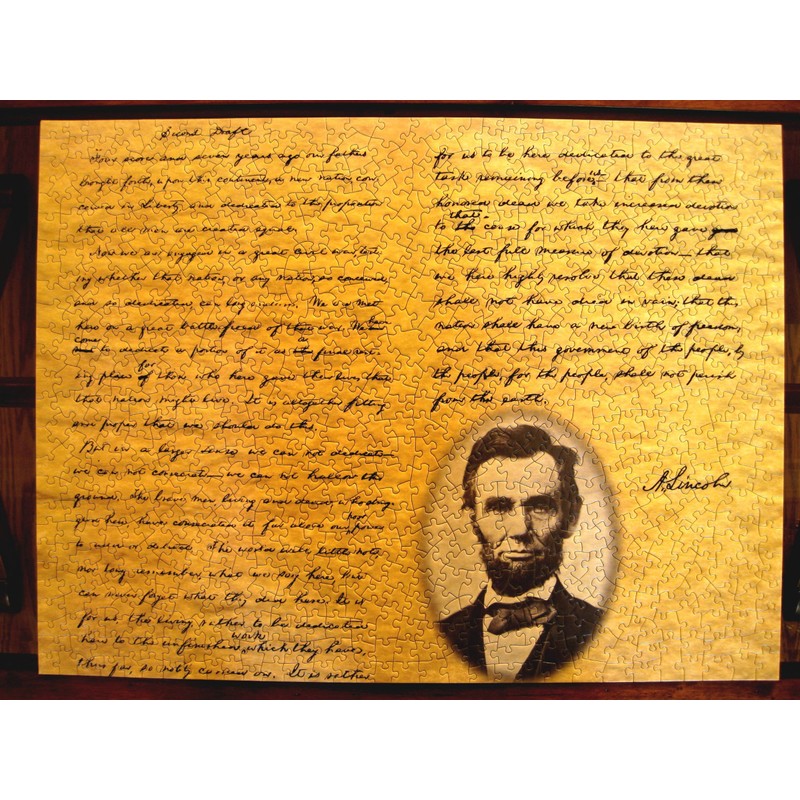 Second Draft
Four score and seven years ago our fathers
brought forth, upon this continent, a new nation, con-
ceived in Liberty, and dedicated to the proposition
that all men are created equal.
Now we are engaged in a great civil war, test-
ing whether that nation, or any nation, so conceived,
and so dedicated, can long endure. We are met
here on a great battle-field of that war. We have
come
to dedicate a portion of it as a final rest-
ing place for those who here gave their lives that
that nation might live. It is altogether fitting
and proper that we should do this.
But in a larger sense we can not dedicate—
we can not consecrate—we can not hallow this
ground. The brave men, living and dead, who strug-
gled here, have consecrated it far above our poor power
to add or detract. The world will little note,
nor long remember, what we say here, but
can never forget what they did here. It is
for us, the living, rather to be dedicated
here to the unfinished work which they have,
thus far, so nobly carried on. It is rather
for us to be here dedicated to the great
task remaining before us— that from these
honored dead we take increased devotion
to that cause for which they here gave gave
the last full measure of devotion— that
we here highly resolve that these dead
shall not have died in vain; that the
nation shall have a new birth of freedom,
and that this government of the people, by
the people, for the people, shall not perish
from the earth.
A. Lincoln